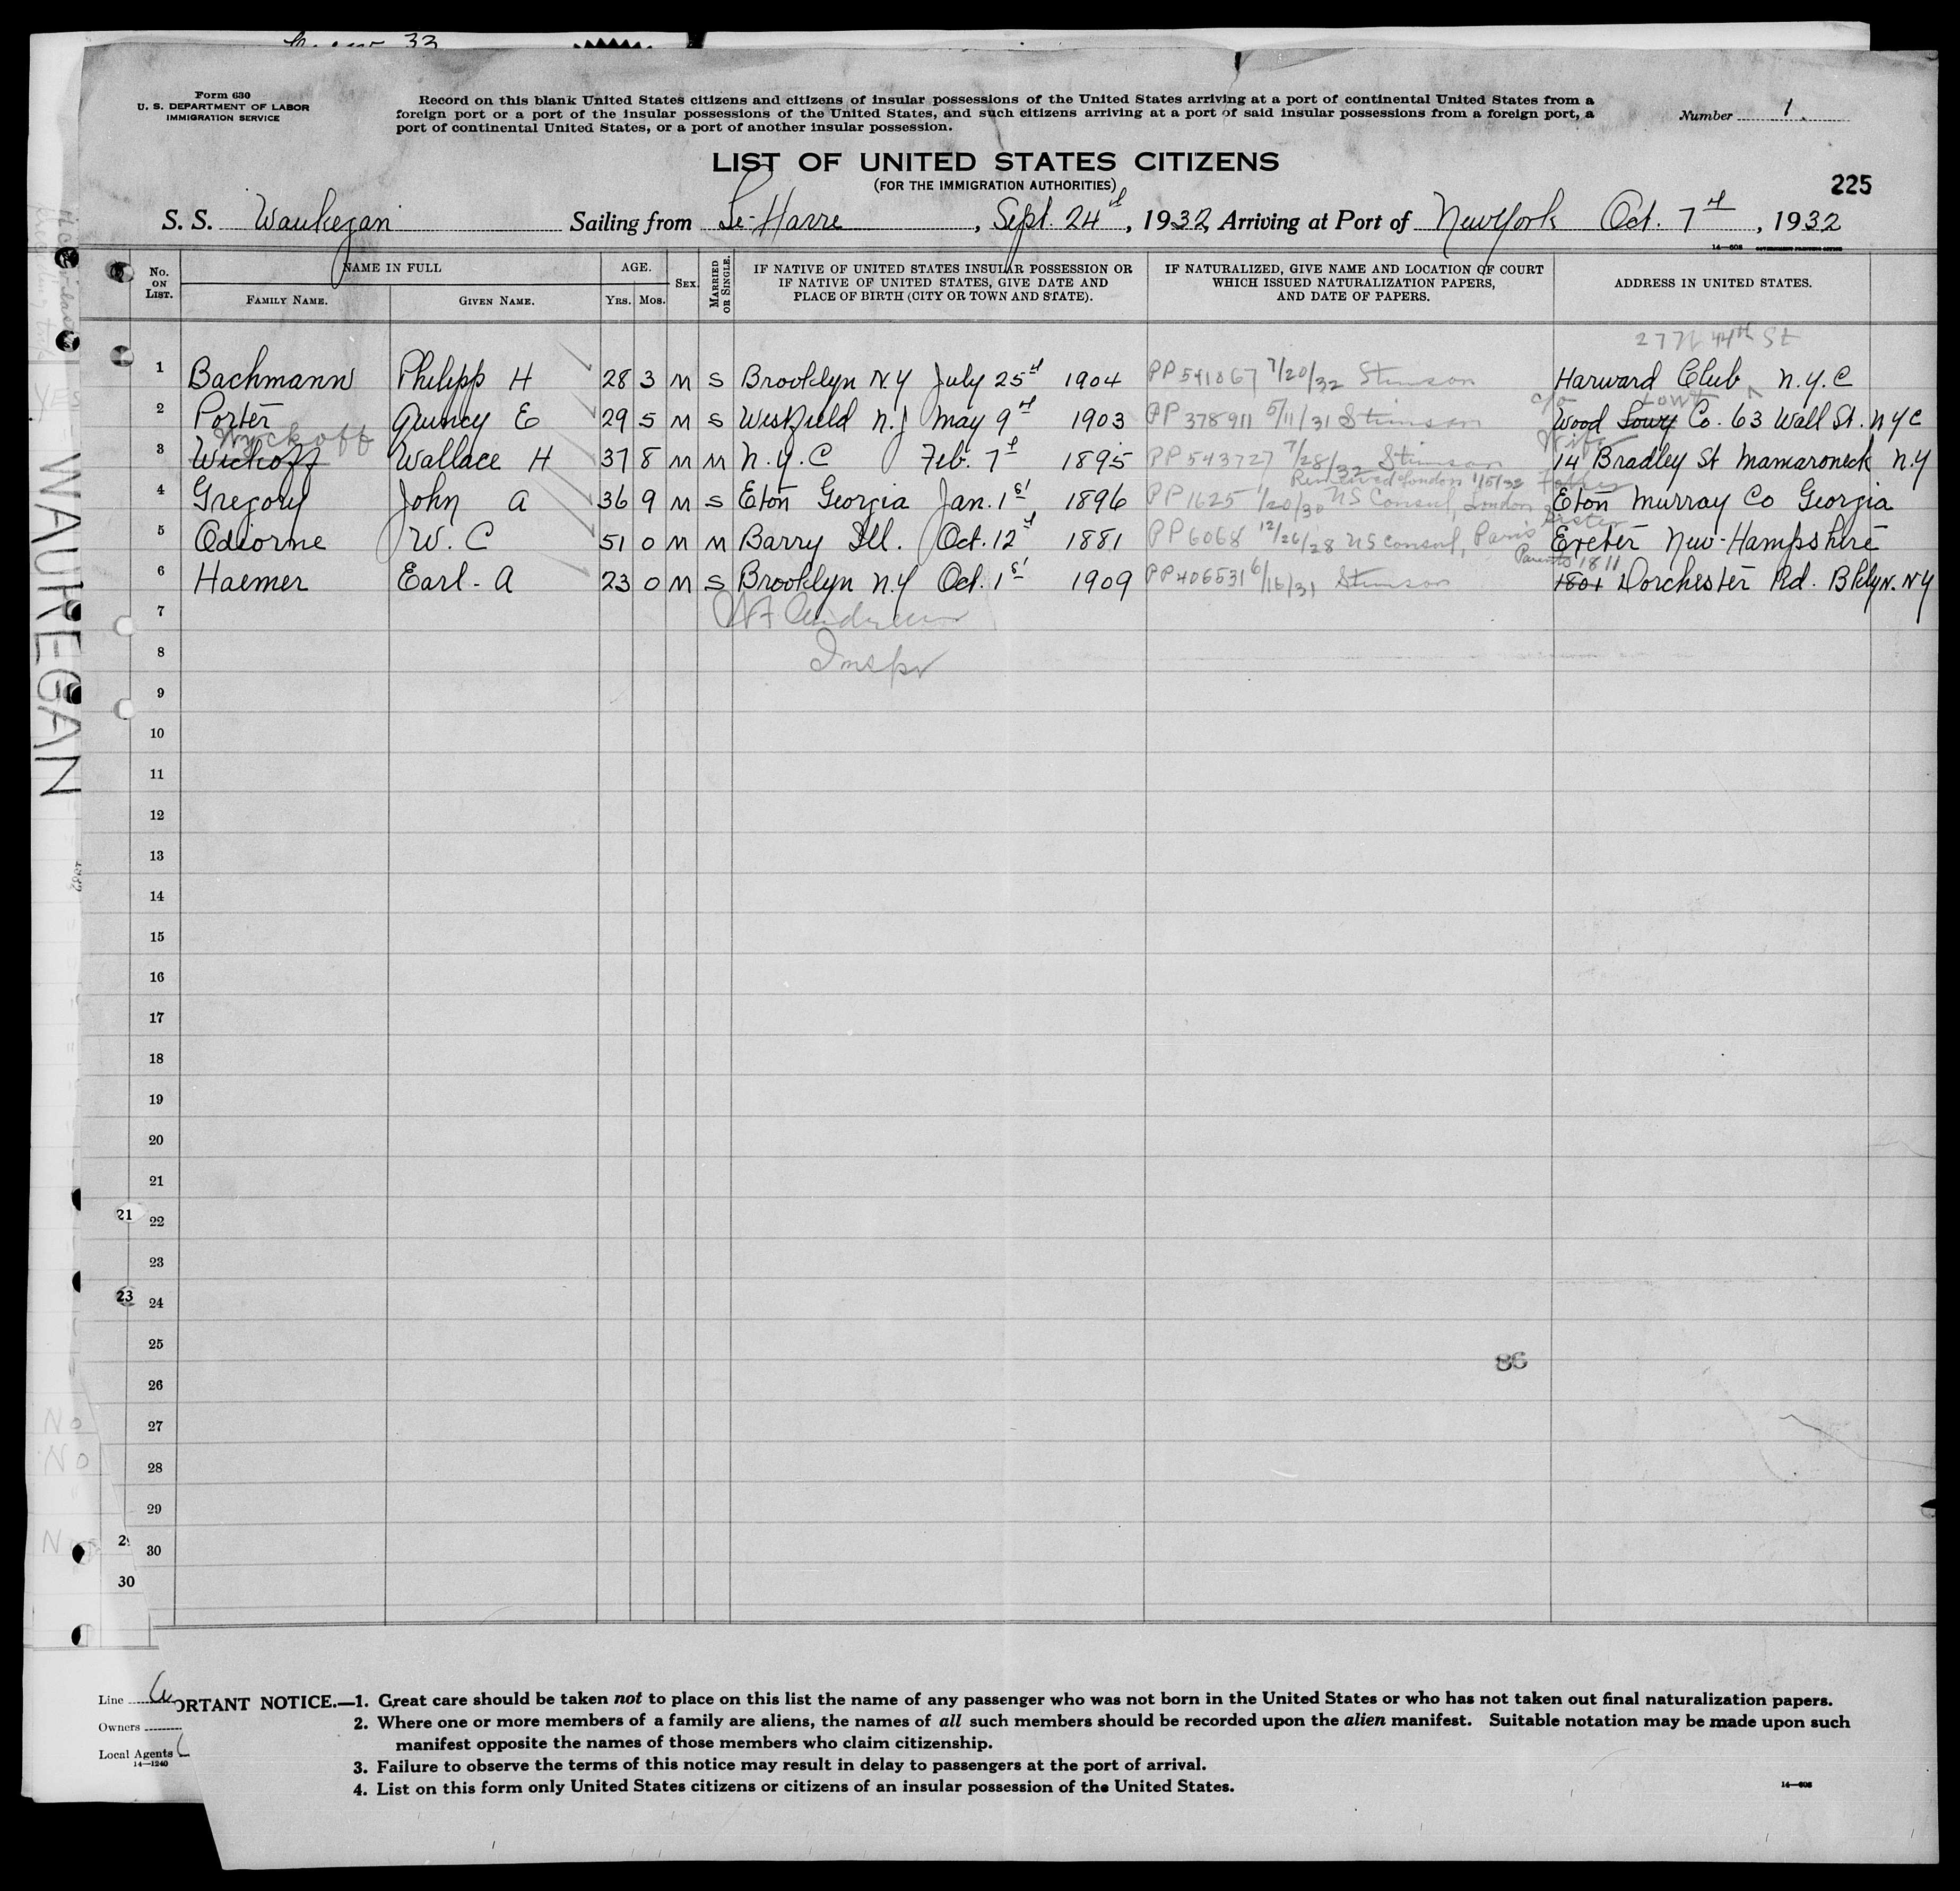 Form 630
U. S. DEPARTMENT OF LABOR
IMMIGRATION SERVICE
Record on this blank United States citizens and citizens of insular possessions of the United States arriving at a port of continental United States from a
foreign port or a port of the insular possessions of the United States, and such citizens arriving at a port of said insular possessions from a foreign port, a
port of continental United States, or a port of another insular possession.
Number 1.
LIST OF UNITED STATES CITIZENS
(FOR THE IMMIGRATION AUTHORITIES)
225
S. S. Waukegan Sailing from Le-Havre, Sept. 24th, 1932, Arriving at Port of New York Oct. 7th, 1932
14—608 GOVERNMENT PRINTING OFFICE
No. ON LIST. NAME IN FULL FAMILY NAME. GIVEN NAME. AGE. Yrs. Mos. SEX. MARRIED OR SINGLE. IF NATIVE OF UNITED STATES INSULAR POSSESSION OR IF NATIVE OF UNITED STATES, GIVE DATE AND PLACE OF BIRTH (CITY OR TOWN AND STATE). IF NATURALIZED, GIVE NAME AND LOCATION OF COURT WHICH ISSUED NATURALIZATION PAPERS, AND DATE OF PAPERS. ADDRESS IN UNITED STATES.
44th St
1 Bachmann Philipp H 28 3 M S Brooklyn N.Y July 25th 1904 PP 541067 7/20/32 Stimson Harward Club N.Y.C
2 Porter Quincy E 29 5 M S Westfield N.J May 9th 1903 PP 378911 5/11/31 Stimson c/o Wood Lowy Co. 63 Wall St. NYC
Wyckoff
3 Wickoff Wallace H 37 8 M M N.Y.C Feb. 7th 1895 PP 543727 7/28/32 Stimson Wife 14 Bradley St Mamaroneck N.Y
Renewed London 1/5/32 Father
4 Gregory John A 36 9 M S Eton Georgia Jan. 1st 1896 PP 1625 1/20/30 US Consul, London Eton Murray Co Georgia
Sister
5 Odiorne W. C 51 0 M M Barry Ill. Oct. 12th 1881 PP 6068 12/26/28 US Consul, Paris Exeter New-Hampshire
Parents 1811
6 Haemer Earl-A 23 0 M S Brooklyn N.Y Oct. 1st 1909 PP 406531 6/16/31 Stimson 1801 Dorchester Rd. Bklyn. NY
7
8 Inspr
9
10
11
12
13
14
15
16
17
18
19
20
21
21 22
23
23 24
25
86
26
27
28
29
30
30
WAUKEGAN
YES
No
No
Line
Owners
Local Agents
14—1240
ORTANT NOTICE.—1. Great care should be taken not to place on this list the name of any passenger who was not born in the United States or who has not taken out final naturalization papers.
2. Where one or more members of a family are aliens, the names of all such members should be recorded upon the alien manifest. Suitable notation may be made upon such
manifest opposite the names of those members who claim citizenship.
3. Failure to observe the terms of this notice may result in delay to passengers at the port of arrival.
4. List on this form only United States citizens or citizens of an insular possession of the United States.
14—608